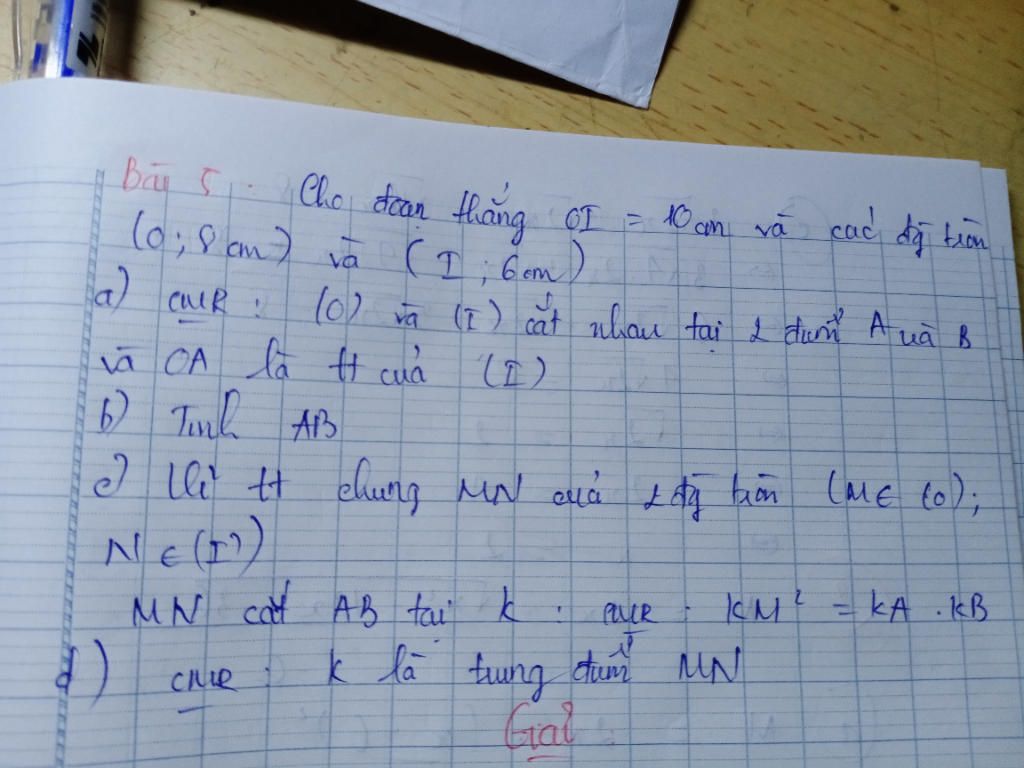 Bài 5. Cho đoạn thẳng OI = 10cm và các đg tròn
(O; 8cm) và (I; 6cm)
a) CMR: (O) và (I) cắt nhau tại 2 điểm A và B
và OA là tt của (I)
b) Tính AB
c) Vẽ tt chung MN của 2 đg tròn (M∈ (O);
N ∈ (I))
MN cắt AB tại K. CMR: KM² = KA.KB
d) CMR: K là trung điểm MN
Giải